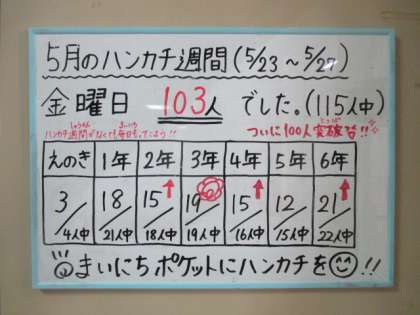 5月のハンカチ週間(5/23～5/27)
金曜日 103人 でした。(115人中)
しゅうかん まいにち
ハンカチ週間がなくても毎日もってこよう!!
とっぱ
ついに100人突破☆!!
えのき 1年 2年 3年 4年 5年 6年
3/4人中 18/21人中 15/18人中 19/19人中 15/16人中 12/15人中 21/22人中
まいにちポケットにハンカチを!!